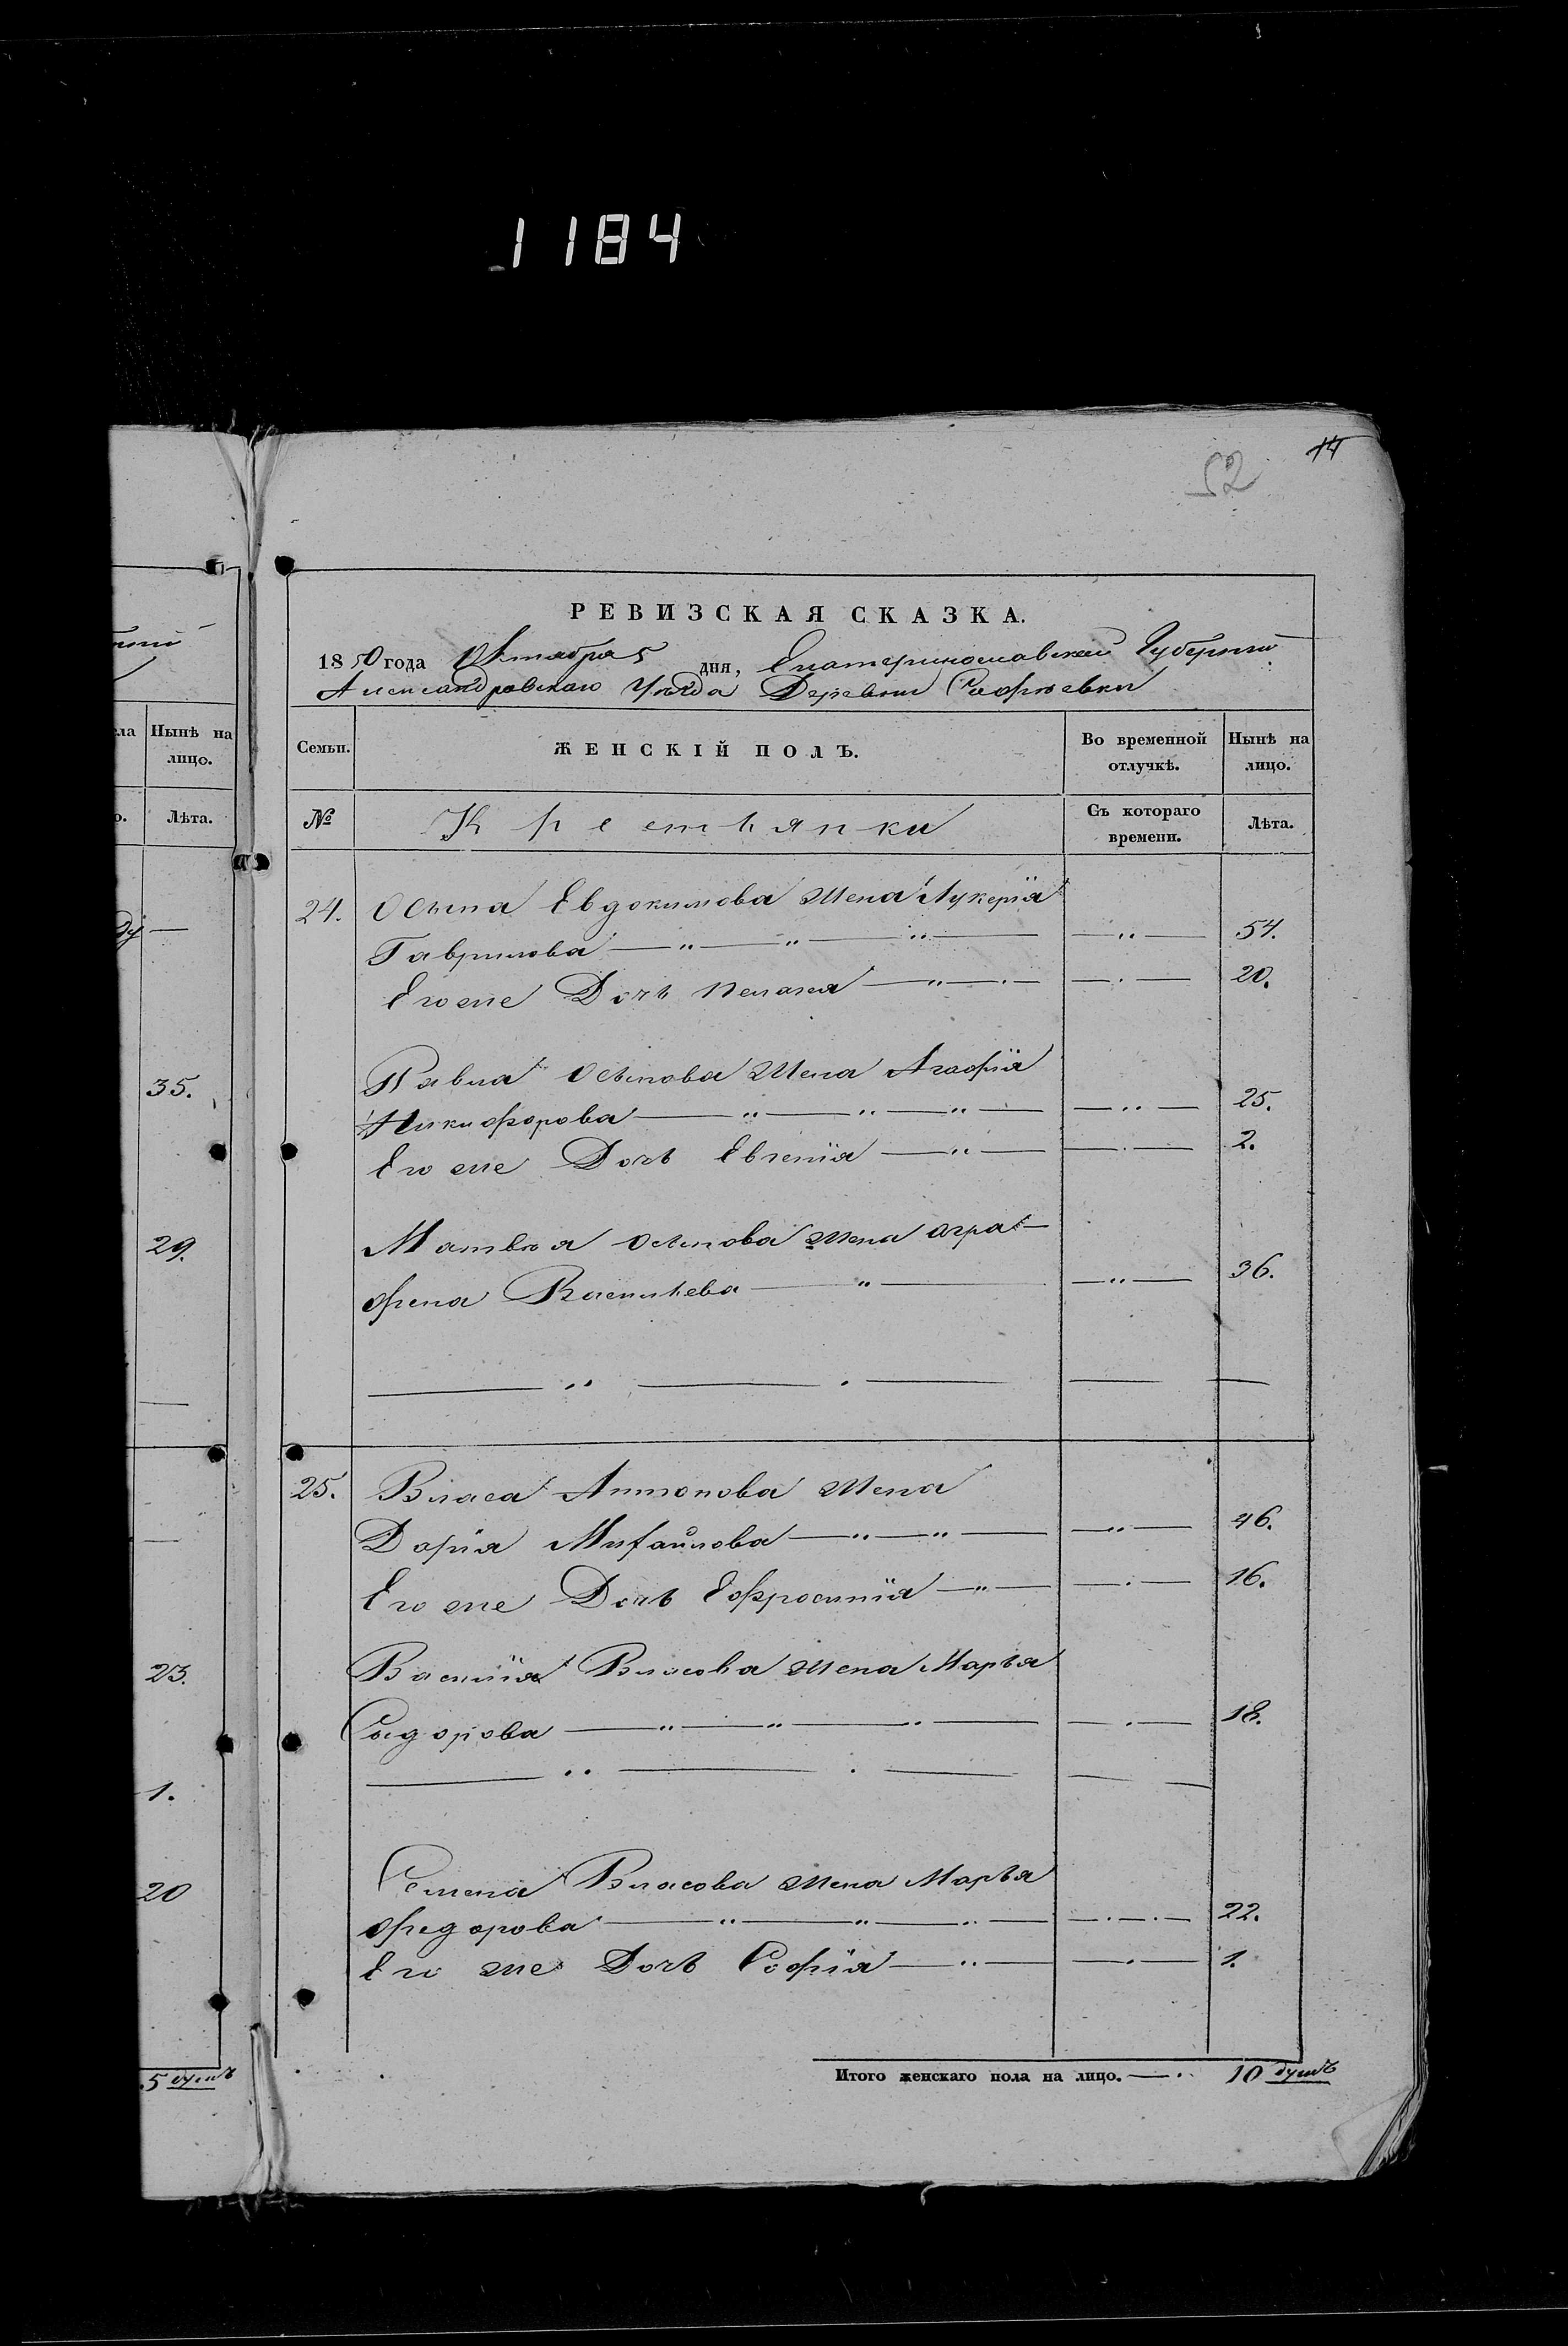 1184
52
14
РЕВИЗСКАЯ СКАЗКА.
1850 года Октября 5 дня, Екатеринославской Губернiи
Александровскаго Уѣзда Деревни Софiевки
Семьи. ЖЕНСКIЙ ПОЛЪ. Во временной отлучкѣ. Нынѣ на лицо.
№ Крестьянки Съ котораго времени. Лѣта.
24. Осипа Евдокимова Жена Лукерiя
Гаврилова 54.
Его же Дочь Пелагея 20.
Павла Осипова Жена Агафiя
Никифорова 25.
Его же Дочь Евгенiя 2.
Матвѣя Осипова Жена Агра-
фена Васильева 36.
25. Власа Антонова Жена
Дарiя Михайлова 46.
Его же Дочь Ефросинiя 16.
Василiя Власова Жена Марья
Сидорова 18.
Семена Власова Жена Марья
Федорова 22.
Его же Дочь Софiя 1.
Итого женскаго пола на лицо. 10 душъ
Нынѣ на
лицо.
Лѣта.
35.
29.
23.
1.
20
5 душъ